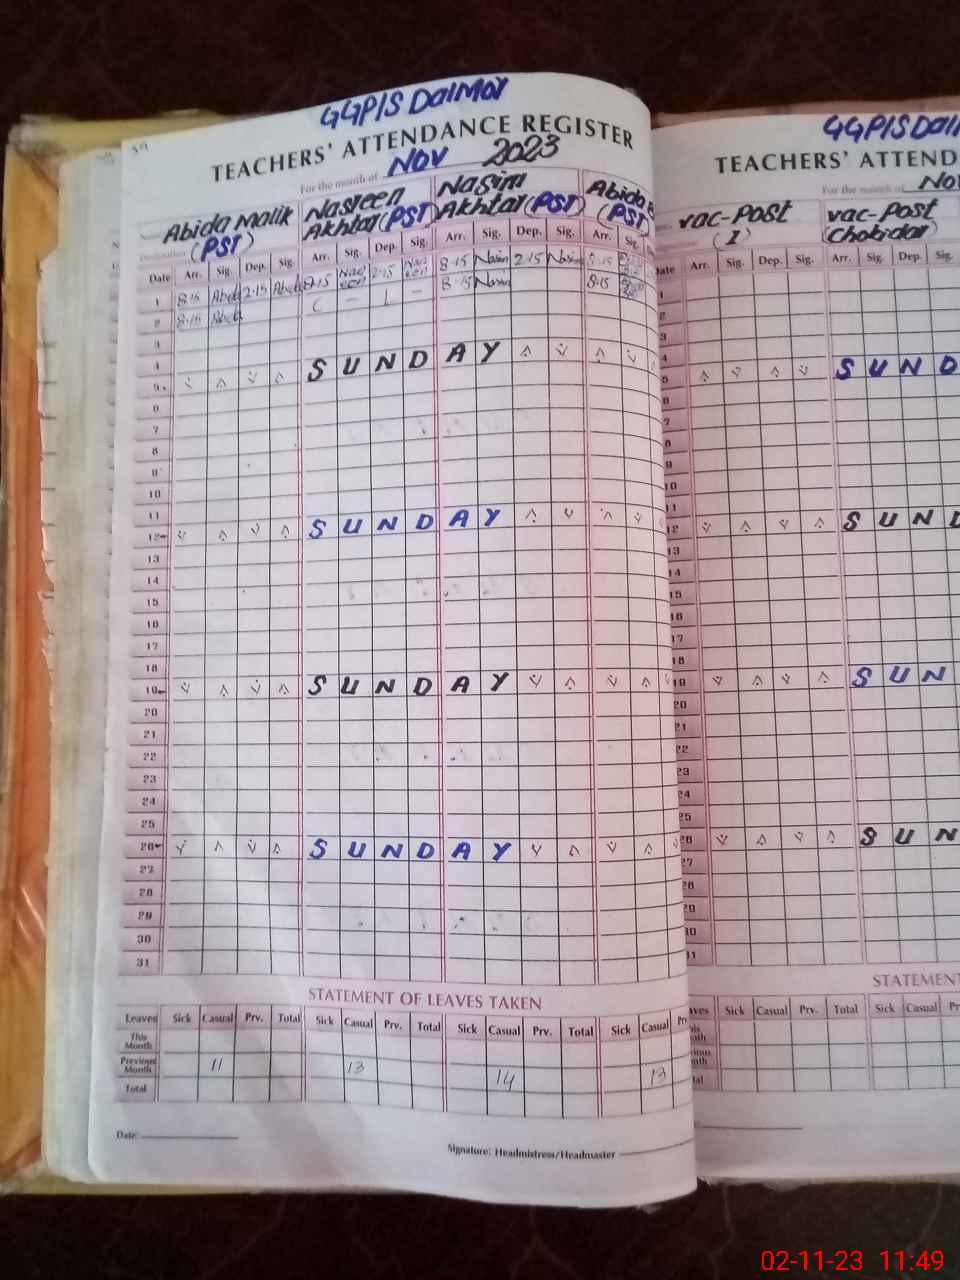 GGP/S DalMor
TEACHERS' ATTENDANCE REGISTER
For the month of Nov 2023
Abida Malik (PST) Nasreen Akhtar (PST) Nasim Akhtar (PST) Abida (PST)
Date Arr. Sig. Dep. Sig. Arr. Sig. Dep. Sig. Arr. Sig. Dep. Sig. Arr. Sig.
1 8-15 Abida 2-15 Abida 8-15 Nasreen 2-15 Nasreen 8-15 Nasim 2-15 Nasim 8-15
2 8-15 Abida C - L - 8-15 Nasim 8-15
3
4
5 SUNDAY
6
7
8
9
10
11
12 SUNDAY
13
14
15
16
17
18
19 SUNDAY
20
21
22
23
24
25
26 SUNDAY
27
28
29
30
31
STATEMENT OF LEAVES TAKEN
Leaves Sick Casual Prv. Total Sick Casual Prv. Total Sick Casual Prv. Total Sick Casual Prv
This Month
Previous Month 11 13 14 13
Total
Date:
Signature: Headmistress/Headmaster
GGP/S Dal
TEACHERS' ATTEND
For the month of Nov
vac-Post (I) vac-Post (Chokidar)
Date Arr. Sig. Dep. Sig. Arr. Sig. Dep. Sig.
1
2
3
4
5 SUND
6
7
8
9
10
11
12 SUND
13
14
15
16
17
18
19 SUN
20
21
22
23
24
25
26 SUN
27
28
29
30
31
STATEMENT
Sick Casual Prv. Total Sick Casual Pr
02-11-23 11:49